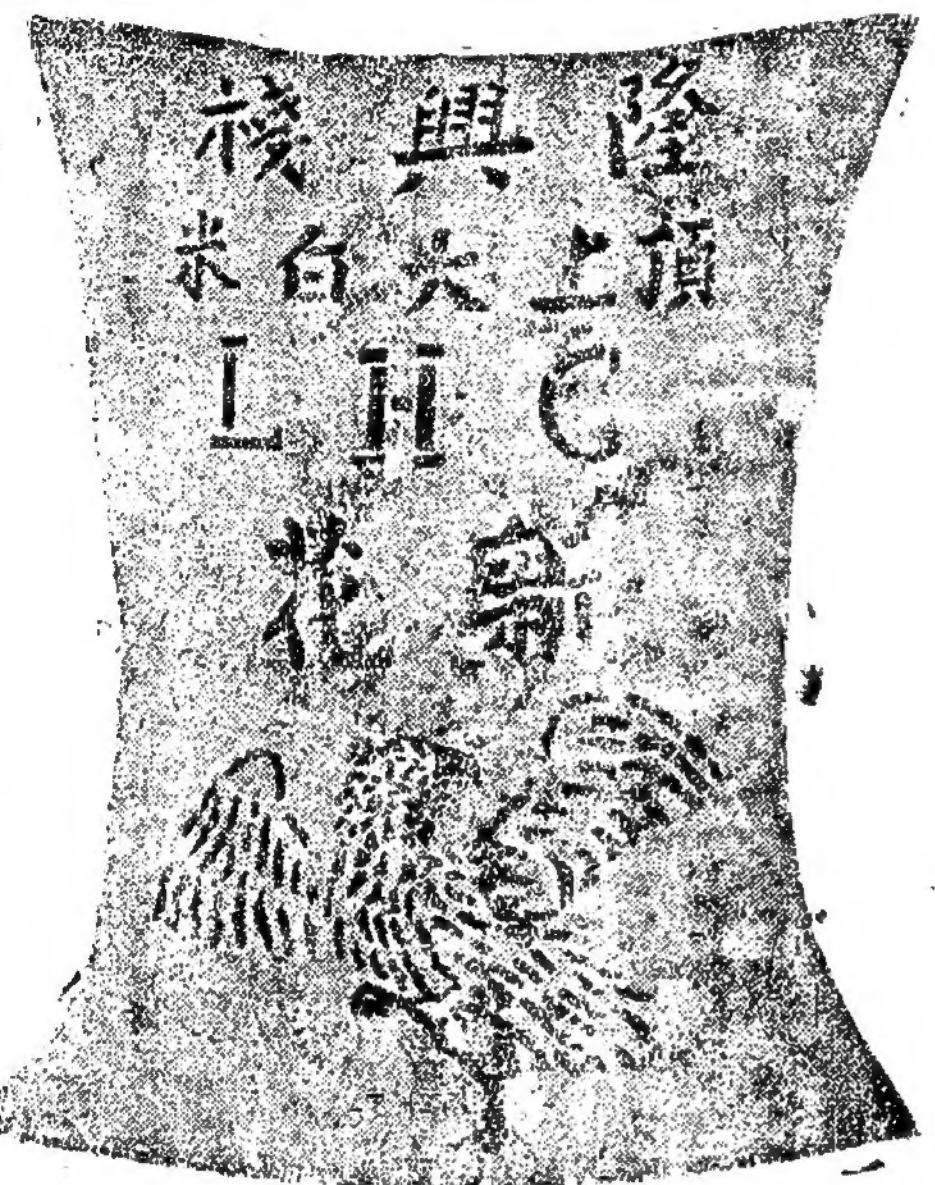 隆興棧
頂上大白米
L H C
花